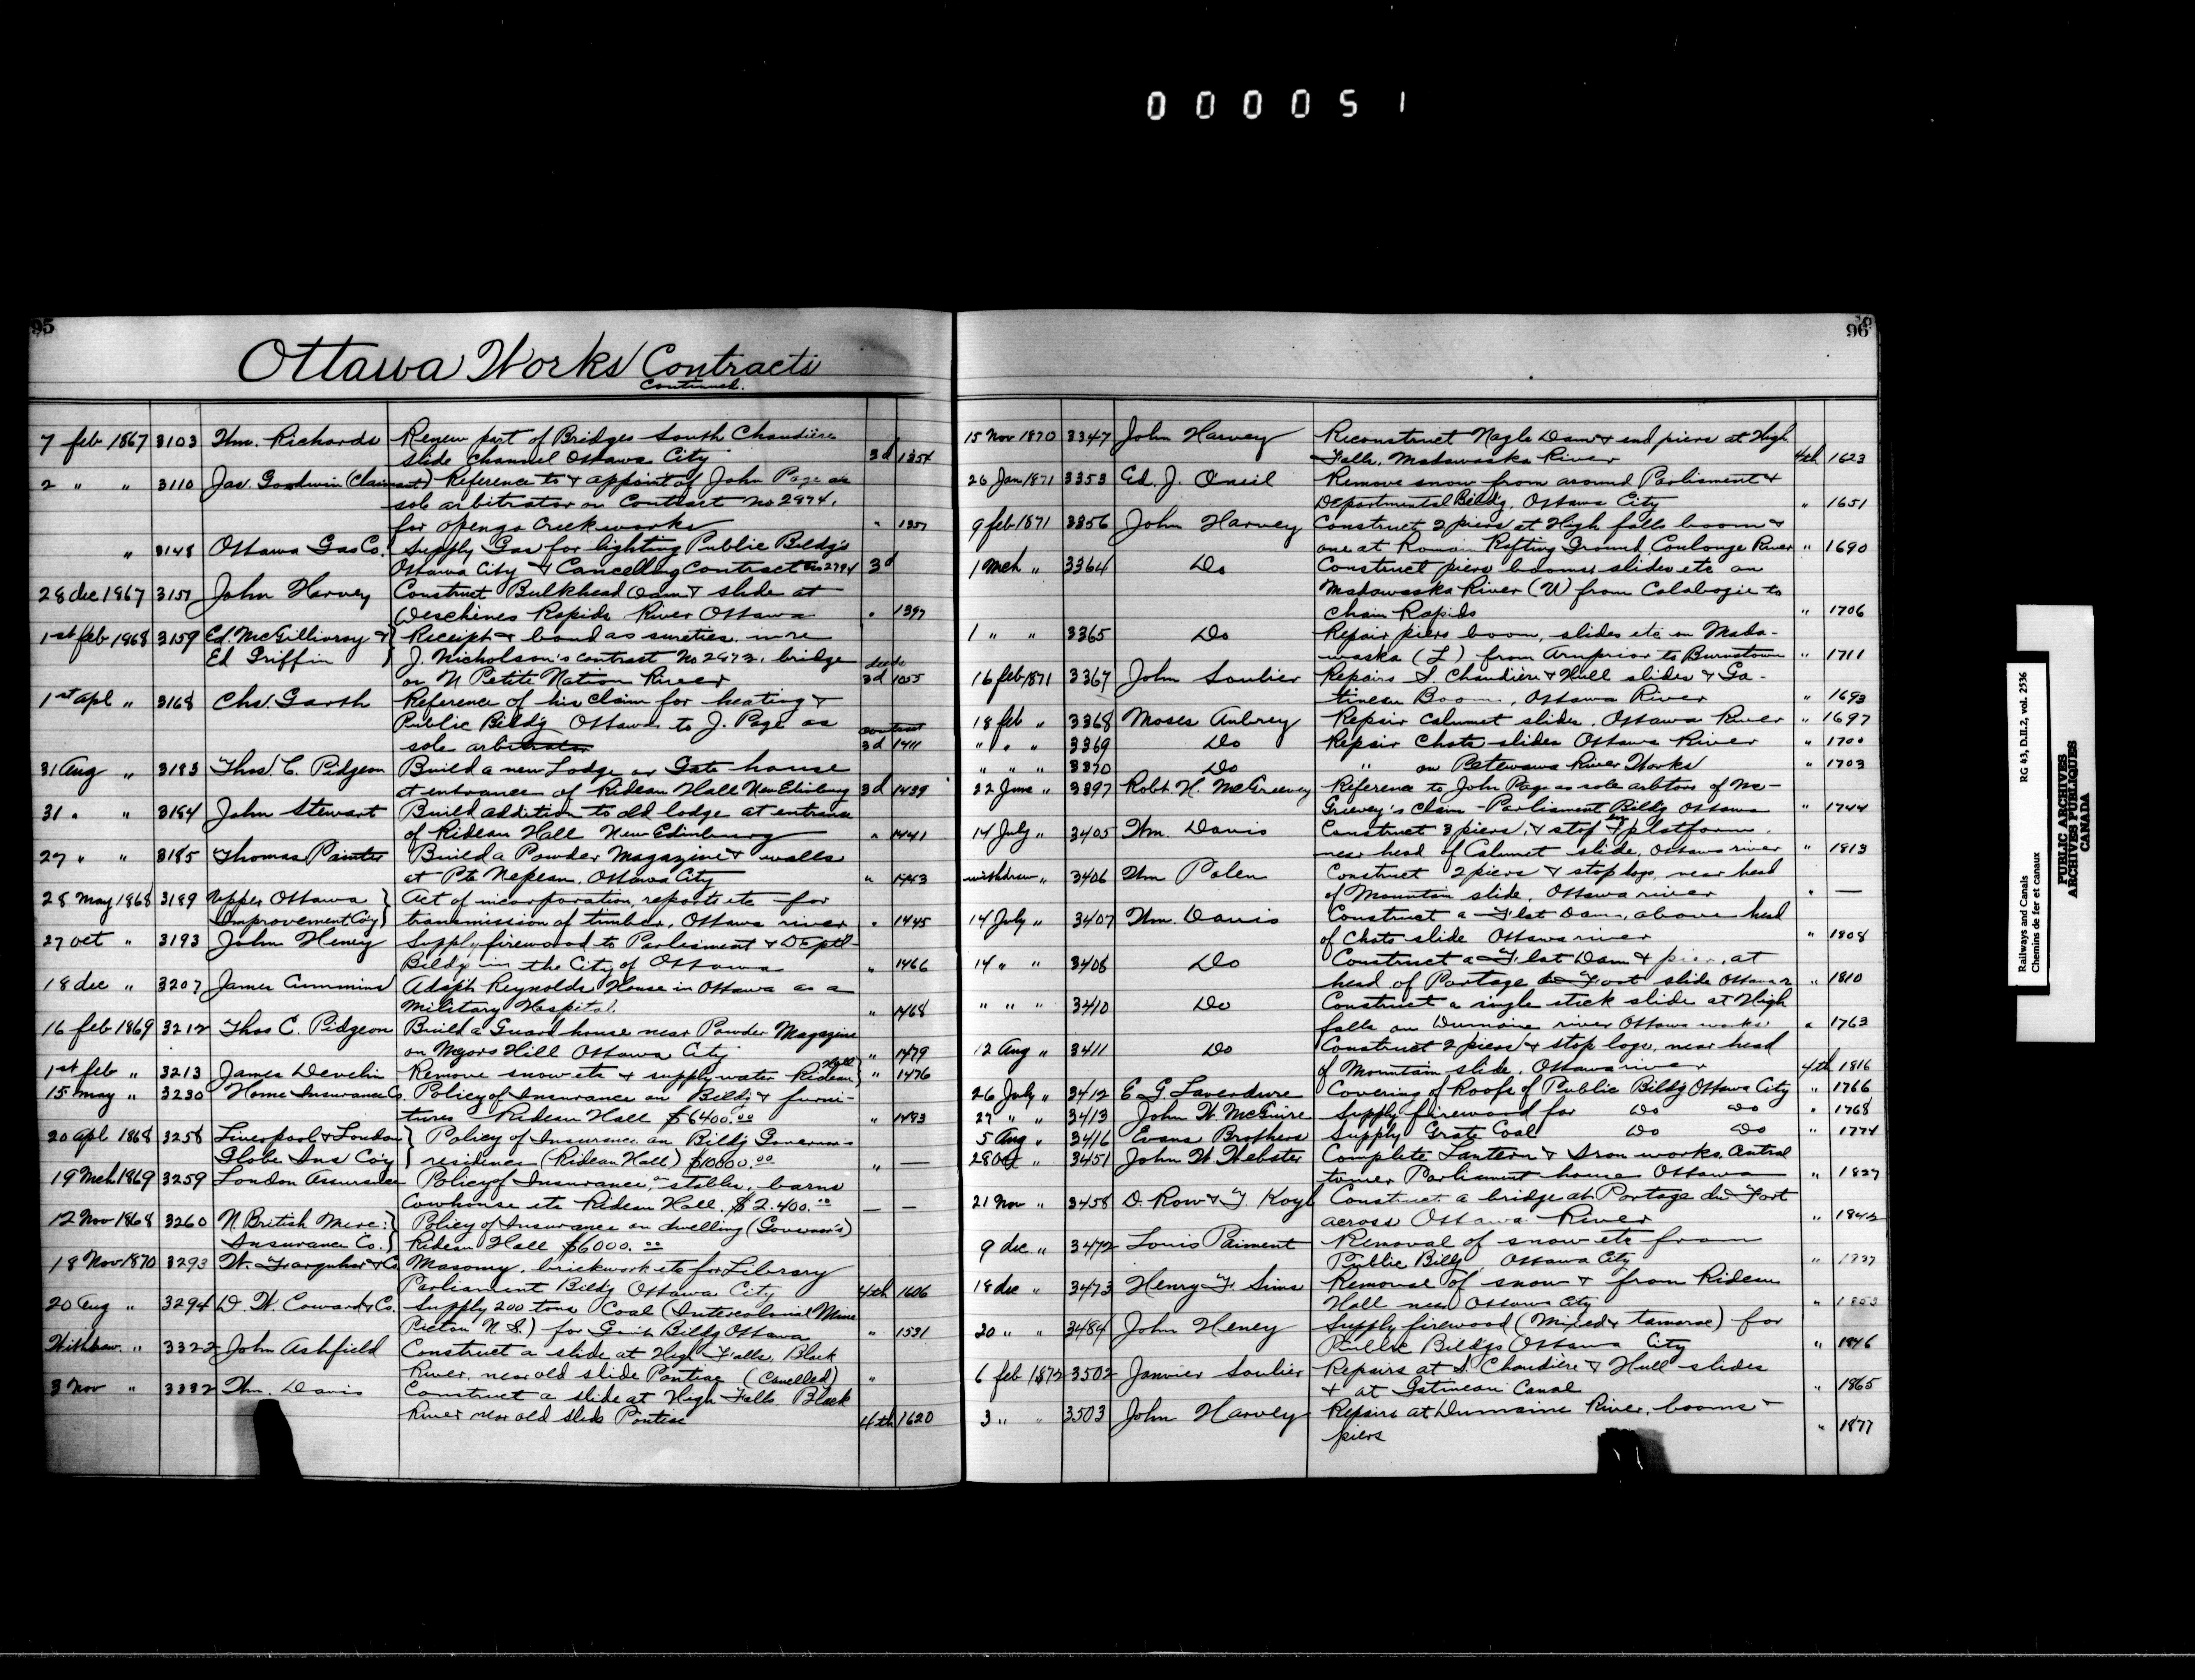 000051
95
Ottawa Works Contracts
Continued.
7 feb 1867 3103 Wm. Richards Renew part of Bridges South Chaudière
slide channel Ottawa City 3d 1354
2 " " 3110 Jas. Goodwin (Claimant) Reference to & appoint of John Page as
sole arbitrator on Contract No 2974.
for opengo Creek works " 1357
" 3148 Ottawa Gas Co. Supply Gas for lighting Public Bldg's
Ottawa City & Cancelling Contract No 2794 3d
28 dec 1867 3157 John Harvey Construct Bulkhead Dam & slide at
Deschênes Rapids River Ottawa " 1397
1st feb 1868 3159 Ed. McGillivray & Receipt & bond as sureties in re
Ed Griffin J. Nicholson's contract No 2973. bridge
on N Petite Nation River 3d 1055
1st apl " 3168 Chs. Garth Reference of his claim for heating &
Public Bldg Ottawa to J. Page as contract
sole arbitrator 3d 1411
31 Aug " 3183 Thos. C. Pidgeon Build a new Lodge or Gate house
at entrance of Rideau Hall New Edinburg 3d 1439
31 " " 3184 John Stewart Build addition to old lodge at entrance
of Rideau Hall New Edinburg " 1441
27 " " 3185 Thomas Painter Build a Powder Magazine & walls
at Pte Nepean, Ottawa City " 1443
28 May 1868 3189 Upper Ottawa Act of incorporation, reports etc for
Improvement Co'y transmission of timber, Ottawa river " 1445
27 oct " 3193 John Heney Supply firewood to Parliament & Deptl
Bldg in the City of Ottawa " 1466
18 dec " 3207 James Cummins Adapt Reynolds House in Ottawa as a
Military Hospital. " 1468
16 feb 1869 3212 Thos C. Pidgeon Build a Guard house near Powder Magazine
on Majors Hill Ottawa City " 1479
1st feb " 3213 James Develin Remove snow etc & supply water Rideau Hall " 1476
15 may " 3230 Home Insurance Co. Policy of Insurance on Bldg & furni-
tures Rideau Hall $6400.00 " 1493
20 apl 1868 3258 Liverpool & London Policy of Insurance on Bldg Governor's
Globe Ins Co'y residence (Rideau Hall) $10000.00 " —
19 Mch 1869 3259 London Assurance Policy of Insurance, on stables, barns
Cowhouse etc Rideau Hall. $2.400.00 — —
12 Nov 1868 3260 N. British Merc: Policy of Insurance on dwelling (Governor's)
Insurance Co. Rideau Hall $6000.00
18 Nov 1870 3293 W. Farquhar & Co Masonry, brickwork etc for Library
Parliament Bldg Ottawa City 4th 1606
20 Aug " 3294 D. W. Coward & Co. Supply 200 tons Coal (Intercolonial Mine
Picton N.S.) for Gov't Bldg Ottawa " 1591
Withdraw. " 3322 John Ashfield Construct a slide at High Falls, Black
River, near old slide Pontiac (Cancelled) "
3 Nov " 3332 Wm. Davis Construct a slide at High Falls Black
River near old slide Pontiac 4th 1620
96
15 Nov 1870 3347 John Harvey Reconstruct Nagle Dam & end piers at High
Falls, Madawaska River 4th 1623
26 Jan 1871 3353 Ed. J. Oneil Remove snow from around Parliament &
Departmental Bldg, Ottawa City " 1651
9 feb 1871 3356 John Harvey Construct 2 piers at High falls boom &
one at Romain Rafting Ground, Coulonge River " 1690
1 Mch " 3364 Do Construct piers booms slides etc on
Madawaska River (U) from Calabogie to
Chain Rapids " 1706
1 " " 3365 Do Repair piers boom, slides etc on Mada-
waska (L) from Arnprior to Burnstown " 1711
16 feb 1871 3367 John Soulier Repairs S. Chaudière & Hull slides & Ga-
tineau Boom, Ottawa River " 1693
18 feb " 3368 Moses Aubrey Repair Calumet slides, Ottawa River " 1697
" " " 3369 Do Repair Chats slides Ottawa River " 1700
" " " 3370 Do " on Petewawa River Works " 1703
22 June " 3397 Robt. H. McGreevey Reference to John Page as sole arbtors of Mc-
Greevey's claim - Parliament Bldg Ottawa " 1744
14 July " 3405 Wm. Davis Construct 3 piers, & stop log & platform.
near head of Calumet slide, Ottawa river " 1813
withdrawn " 3406 Wm Polen Construct 2 piers & stop logs, near head
of Mountain slide, Ottawa river " —
14 July " 3407 Wm. Davis Construct a Flat Dam, above head
of Chats slide Ottawa river " 1808
14 " " 3408 Do Construct a Flat Dam & pier, at
head of Portage du Fort slide Ottawa r " 1810
" " " 3410 Do Construct a single stick slide at High
falls on Dumoine river Ottawa works " 1763
12 Aug " 3411 Do Construct 2 piers & stop logs, near head
of Mountain slide, Ottawa river 4th 1816
26 July " 3412 E. G. Laverdure Covering of Roofs of Public Bldg Ottawa City " 1766
27 " " 3413 John W. McGuire Supply firewood for Do Do " 1768
5 Aug " 3416 Evans Brothers Supply Grate Coal Do Do " 1774
28 Oct " 3451 John W Webster Complete Lantern & Iron works,
tower Parliament house Ottawa " 1827
21 Nov " 3458 D. Row & F. Koyl Construct a bridge at Portage du Fort
across Ottawa River " 1842
9 dec " 3472 Louis Paiment Removal of snow etc from
Public Bldg, Ottawa City "
18 dec " 3473 Henry F. Sims Removal of snow & from Rideau
Hall near Ottawa City " 1853
20 " " 3484 John Heney Supply firewood (Mixed & tamarac) for
Public Bldgs Ottawa City " 1846
6 feb 1872 3502 Janvier Soulier Repairs at S. Chaudière & Hull slides
& at Gatineau Canal " 1865
3 " " 3503 John Harvey Repairs at Dumoine River, booms &
piers " 1877
Railways and Canals RG 43, D.II.2, vol. 2536
Chemins de fer et canaux
PUBLIC ARCHIVES
ARCHIVES PUBLIQUES
CANADA